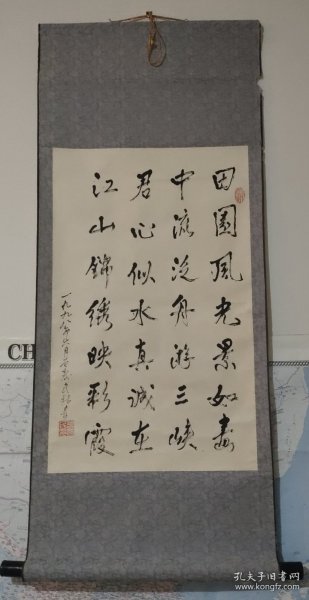 田園风光景如畫
中流泛舟游三峡
君心似水真誠在
江山锦绣映彩霞
一九九八年
CH
孔夫子旧书网
www.kongfz.com